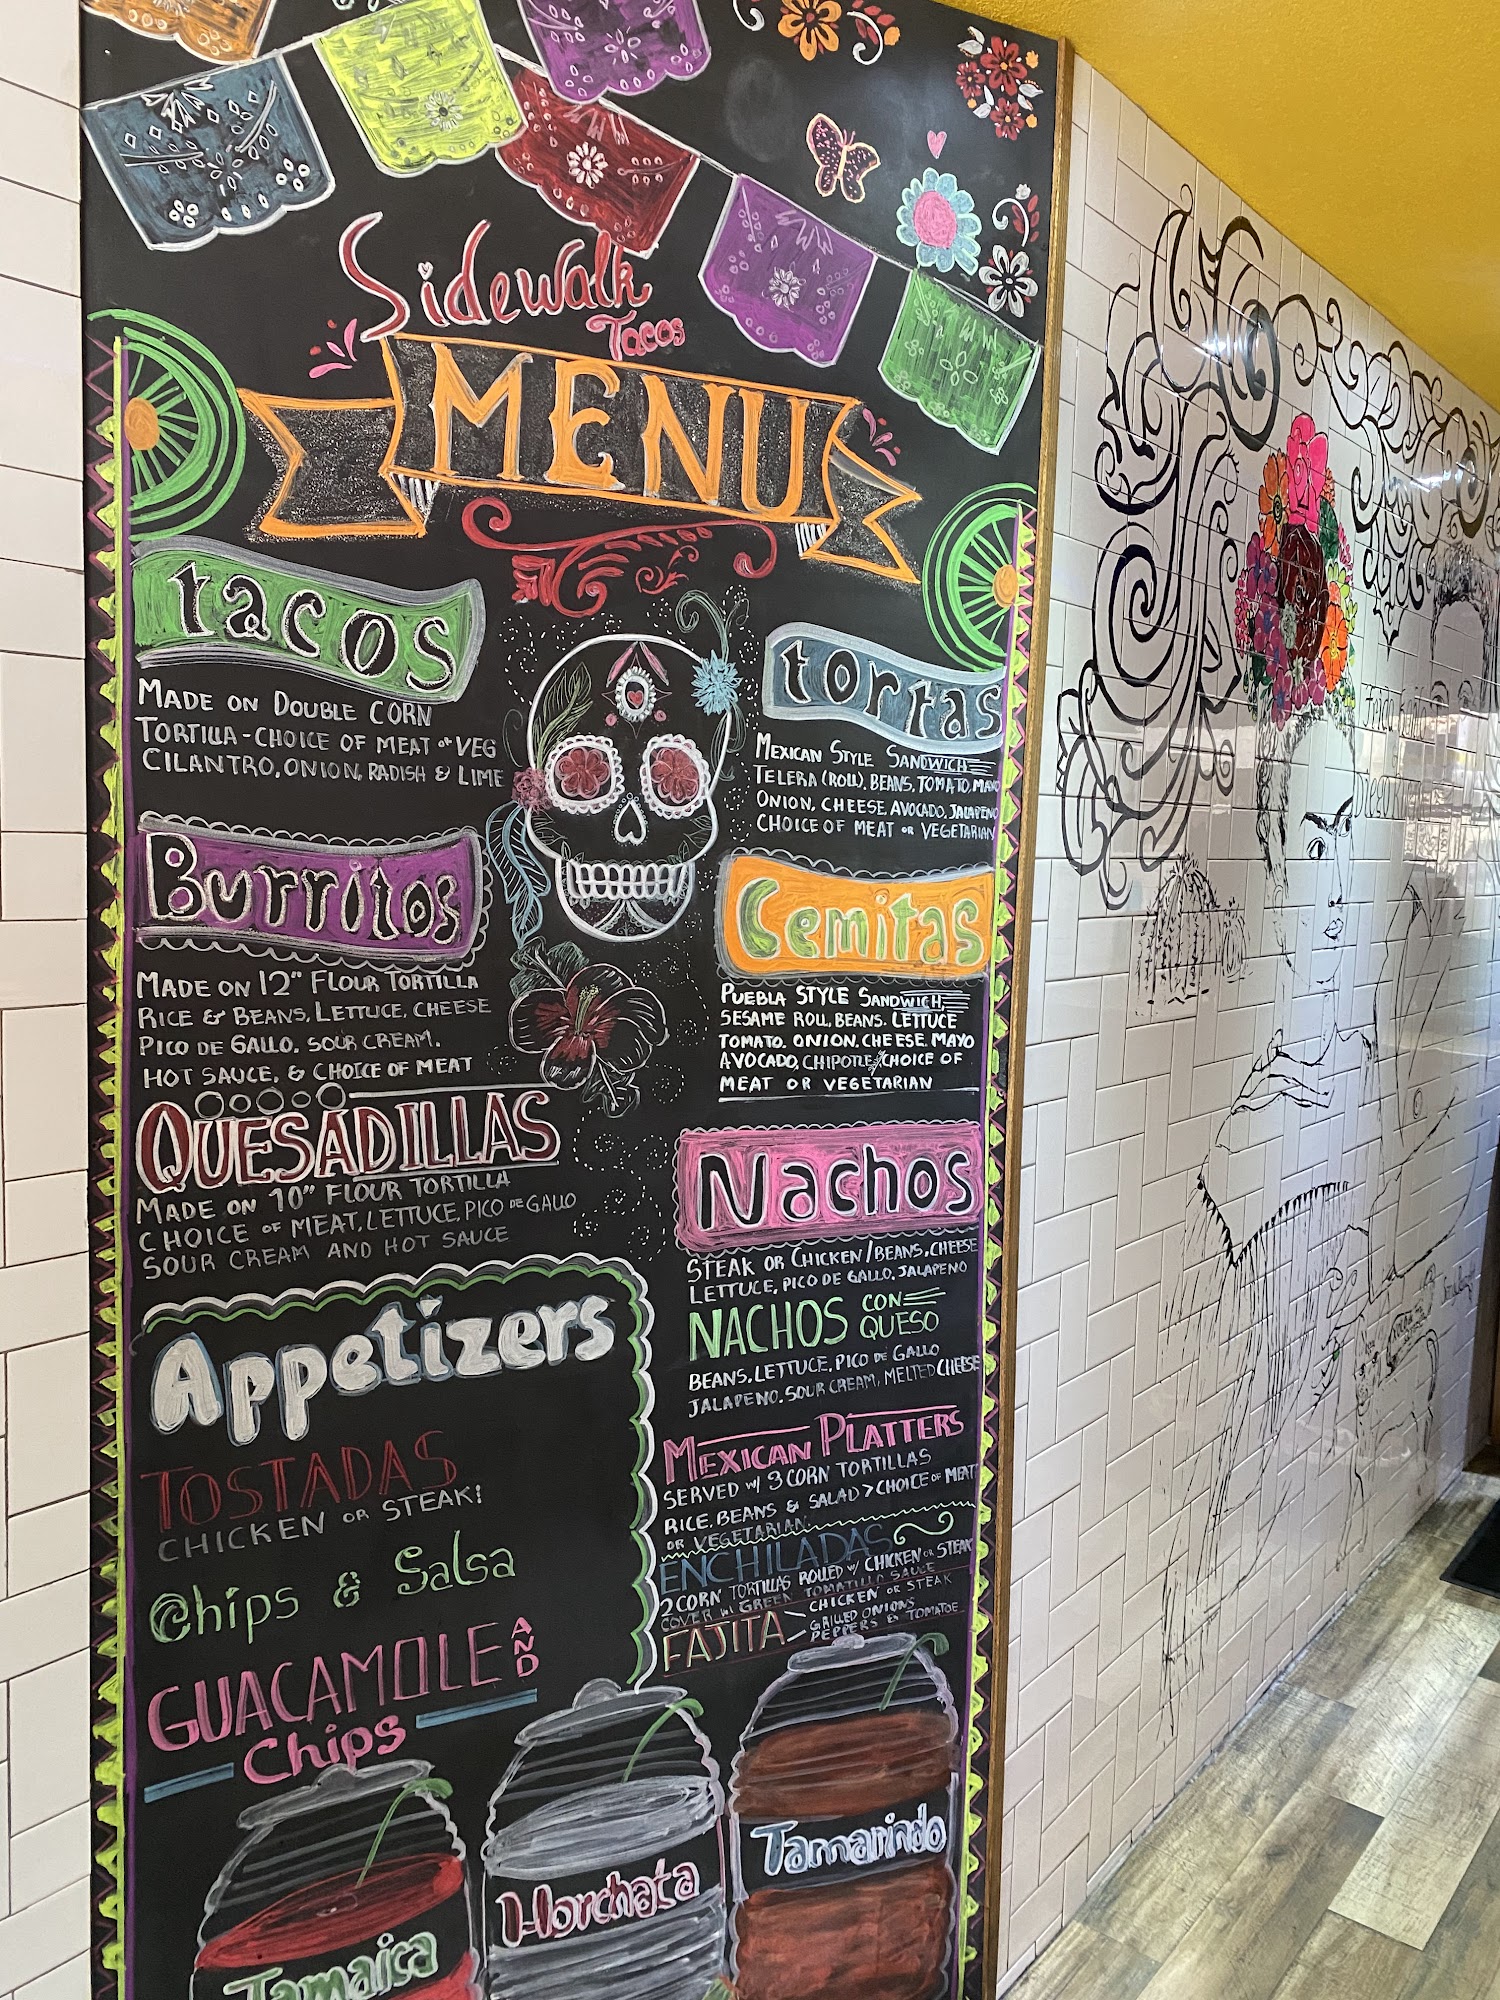 Sidewalk
Tacos
MENU
tacos
MADE ON DOUBLE CORN
TORTILLA - CHOICE OF MEAT or VEG
CILANTRO, ONION, RADISH & LIME
Burritos
MADE ON 12" FLOUR TORTILLA
RICE & BEANS, LETTUCE, CHEESE
PICO DE GALLO, SOUR CREAM,
HOT SAUCE, & CHOICE OF MEAT
QUESADILLAS
MADE ON 10" FLOUR TORTILLA
CHOICE OF MEAT, LETTUCE, PICO DE GALLO
SOUR CREAM AND HOT SAUCE
Appetizers
TOSTADAS
CHICKEN OR STEAK!
Chips & Salsa
GUACAMOLE AND
Chips
tortas
MEXICAN STYLE SANDWICH
TELERA (ROLL), BEANS, TOMATO, MAYO
ONION, CHEESE, AVOCADO, JALAPENO
CHOICE OF MEAT OR VEGETARIAN
Cemitas
PUEBLA STYLE SANDWICH,
SESAME ROLL, BEANS, LETTUCE
TOMATO, ONION, CHEESE, MAYO
AVOCADO, CHIPOTLE, CHOICE OF
MEAT OR VEGETARIAN
Nachos
STEAK OR CHICKEN/BEANS, CHEESE
LETTUCE, PICO DE GALLO, JALAPENO
NACHOS CON
QUESO
BEANS, LETTUCE, PICO DE GALLO
JALAPENO, SOUR CREAM, MELTED CHEESE
MEXICAN PLATTERS
SERVED W/ 3 CORN TORTILLAS
RICE, BEANS & SALAD > CHOICE OF MEAT
OR VEGETARIAN
ENCHILADAS
2 CORN TORTILLAS ROLLED W/ CHICKEN OR STEAK
COVER W/ GREEN TOMATILLO SAUCE
FAJITA CHICKEN OR STEAK
GRILLED ONIONS
PEPPERS & TOMATOE
Jamaica
Horchata
Tamarindo